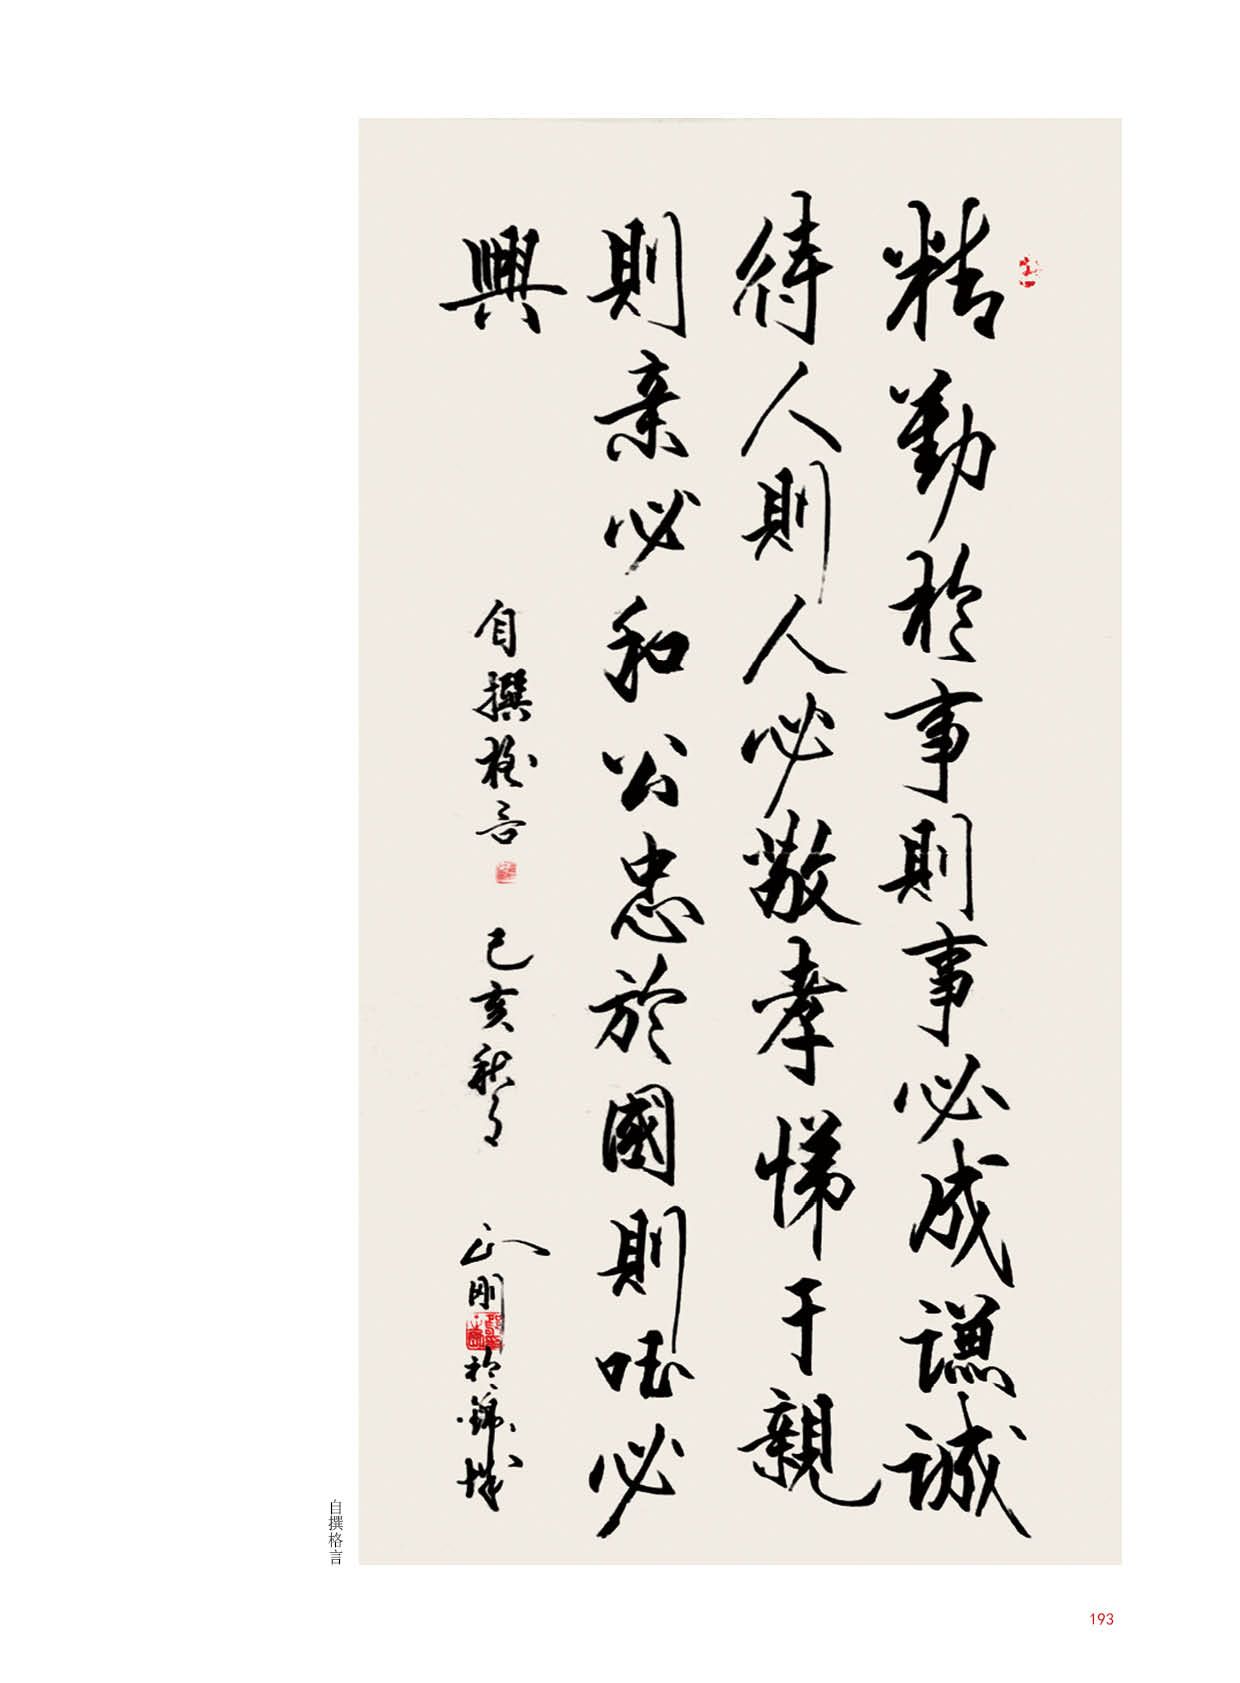 精勤於事則事必成謙誠
待人則人必敬孝悌于親
則亲必和公忠於國則國必
興
自撰格言 己亥秋月 正剛於錦城
自撰格言
193